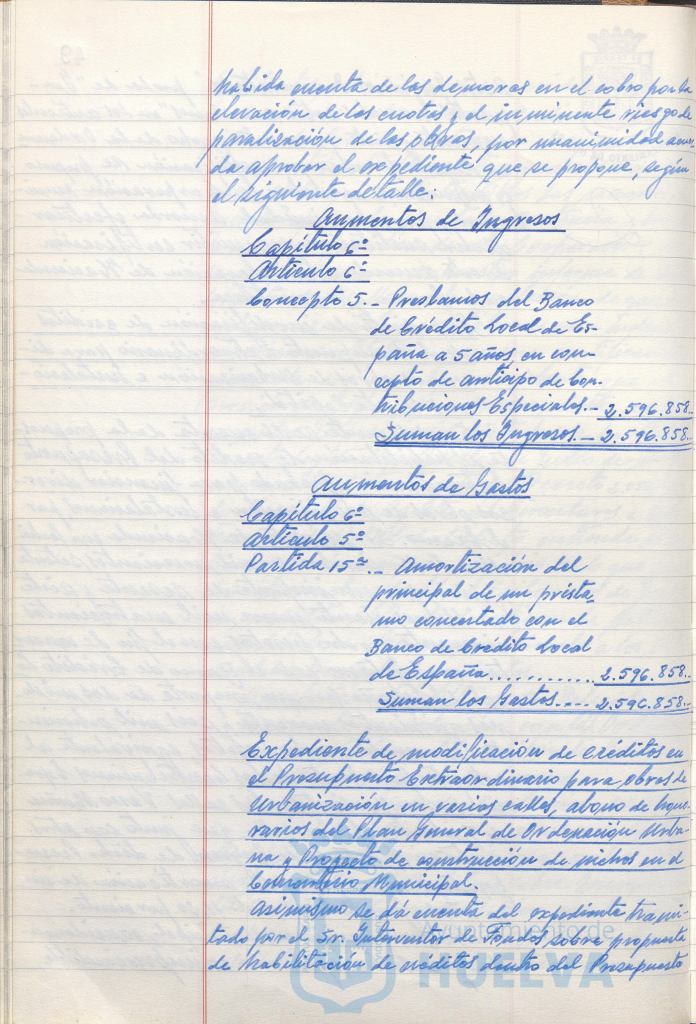 habida cuenta de las demoras en el cobro por la
elevación de las cuotas y el inminente riesgo de
paralización de las obras, por unanimidad acuer-
da aprobar el expediente que se propone, según
el siguiente detalle:
Aumentos de Ingresos
Capítulo 6º
Artículo 6º
Concepto 5.- Prestamos del Banco
de Crédito Local de Es-
paña a 5 años en con-
cepto de anticipo de Con-
tribuciones Especiales.- 2.596.858..
Suman los Ingresos.- 2.596.858..
Aumentos de Gastos
Capítulo 6º
Artículo 5º
Partida 15ª.- Amortización del
principal de un présta-
mo concertado con el
Banco de Crédito Local
de España............ 2.596.858..
Suman los Gastos.... 2.596.858..
Expediente de modificación de créditos en
el Presupuesto Extraordinario para obras de
Urbanización en varias calles, abono de hono-
rarios del Plan General de Ordenación Urba-
na y Proyecto de construcción de nichos en el
Cementerio Municipal.
Asimismo se dá cuenta del expediente trami-
tado por el Sr. Interventor de Fondos sobre propuesta
de habilitación de créditos dentro del Presupuesto
Ayuntamiento de
HUELVA